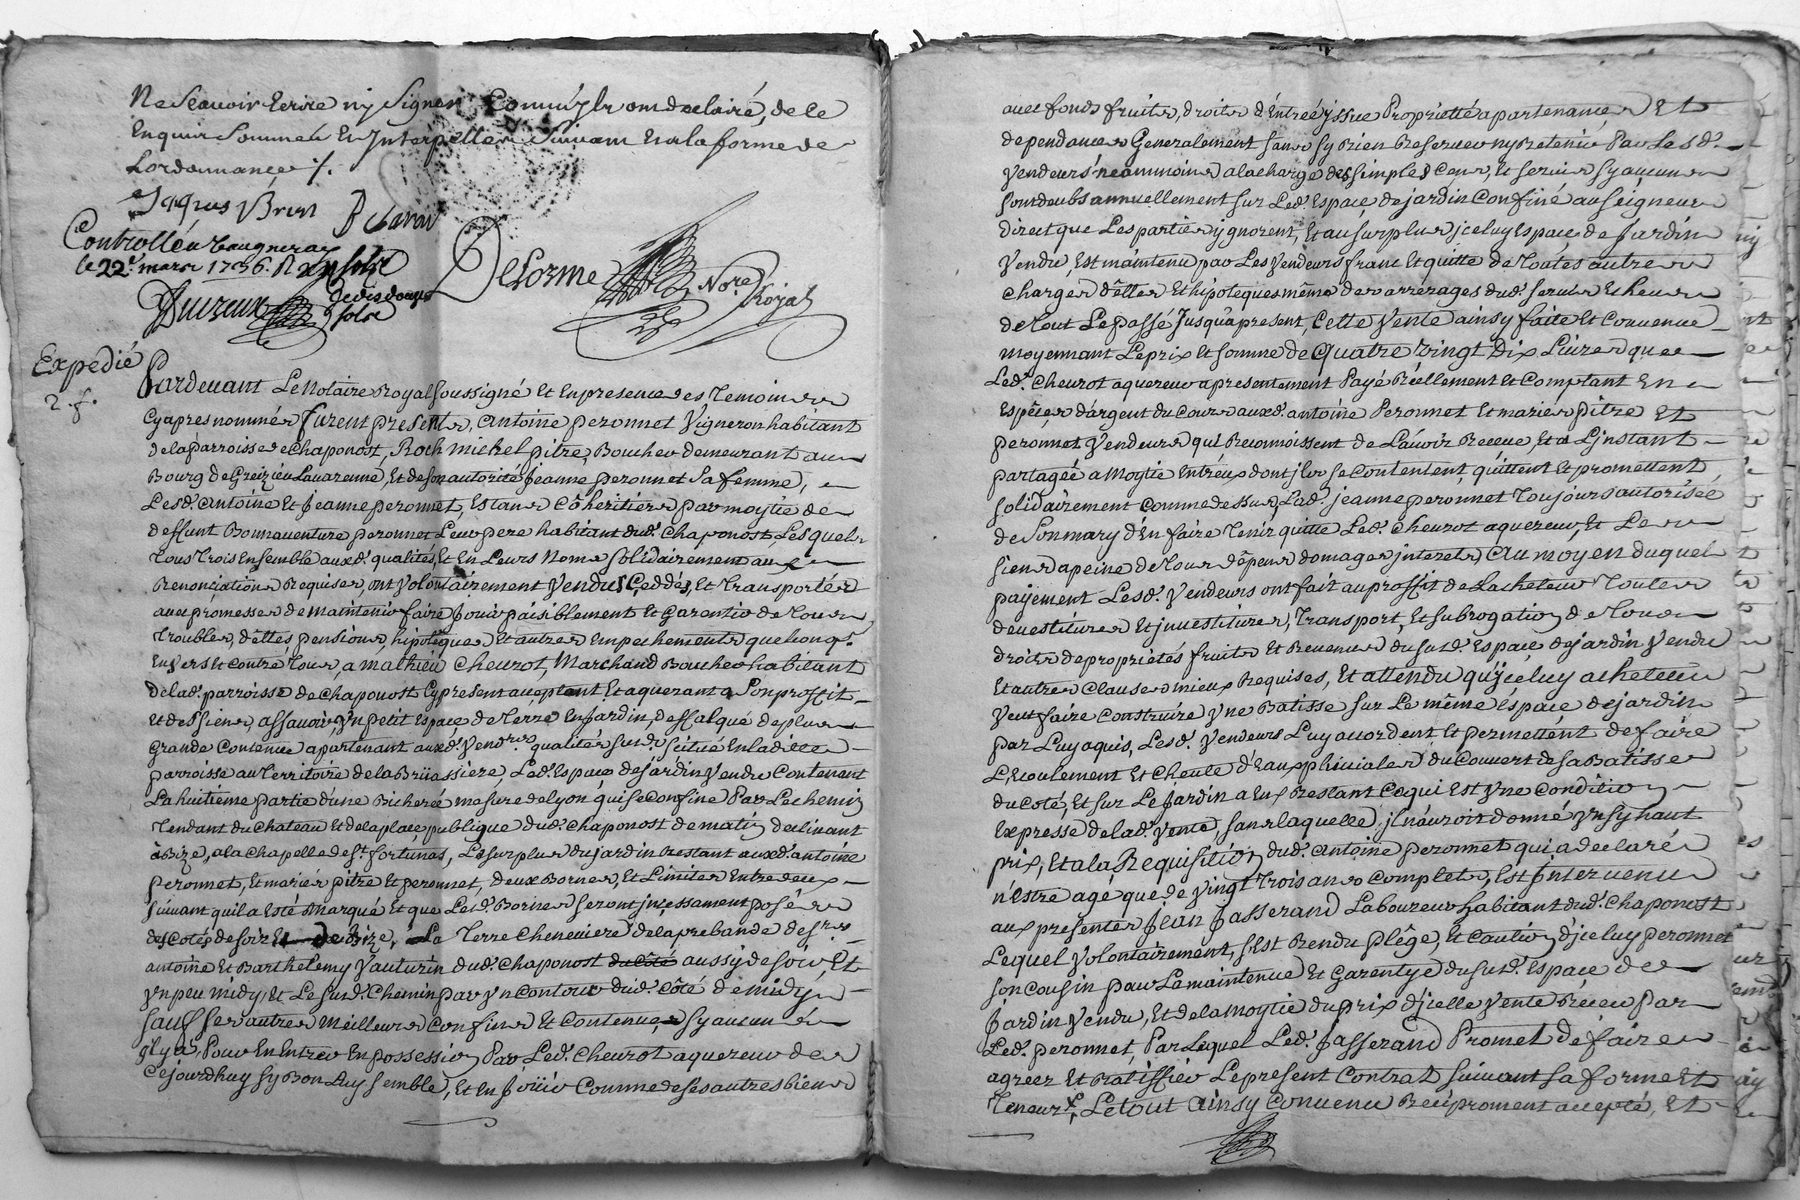 Ne Scavoir Ecrire ny Signer Comm'ylz ont declairé, de ce
Enquis Sommés Et Interpellés Suivant Et a la forme de
Lordonnance %.
Jaques Brun
Controllé a Vaugneray
le 22e. mars 1736. R
DeLorme Nore. Royal
Expedié
2. f.
Pardevant Le Notaire Royal soussigné Et En presence des Temoins
Cy apres nommés furent presents, Antoine peronnet Vigneron habitant
de la parroisse de Chaponost, Roch michel pitre, Boucher demeurant au
Bourg de Greizieu Lavarenne, Et de son autorité Jeanne peronnet Sa femme,
Lesd. Antoine Et Jeanne peronnet, Estans Cohéritiers par moytié de
deffunt Bonnaventure peronnet Leur pere habitant dud. Chaponost, Lesquels
tous Trois Ensemble auxd. qualités, Et En Leurs Noms Solidairement aux
Renonciations Requises, ont volontairement Vendus, Ceddés, Et Transportés
avec promesse de maintenir faire Jouir paisiblement Et Garentir de Tous
Troubles, dettes, pensions, hipoteques Et autres Empechements quelconqs.
Envers Et Contre Tous, a Mathieu Cheuzot, Marchand Boucher habitant
de lad. parroisse de Chaponost Cy present aceptant Et aquerant a Son proffit
Et des Siens, assavoir, yn petit Espace de Terre En Jardin, deffalqué de plus
Grande Contenue apartenant auxd. Vendrs. qualités Susds. scitué En ladite
parroisse au Territoire de la Brüassiere, Led. Espace de jardin vendu Contenant
La huitieme partie d'une Bicherée mesure de Lyon qui se Confine Par Le chemin
Tendant du Chateau Et de la place publique dud. Chaponost de matin declinant
à Bize, a la Chapelle de St. fortunas, Le surplus du jardin Restant auxd. antoine
peronnet, Et mariés pitre Et peronnet, deux Bornes, Et Limites Entre deux
suivant quil a Esté Marqué Et que Lesd. Bornes seront jncessament posés
des Cotés de soir Et de Bize, La Terre Cheneviere de la prebande des
antoine Et Barthelemy Vauturin dud. Chaponost du Côté aussy de soir, Et
yn peu midy, Et Le susd. Chemin par yn Contour dud. côté de midy
sauf ses autres Meilleurs Confins Et Contenues, sy aucuns
y a, Pour En Entrer En possession Par Led. Cheuzot aquereur des
Cejourdhuy sy Bon Luy semble, Et En Joüir Comme de ses autres biens
avec fonds fruits, droits d'Entrée, yssue Proprietté apartenances Et
dependances Generalement sans sy Rien Reserver ny Retenir Par Lesd.
Vendeurs neammoins a la charge des simples Cens, Et servis sy aucuns
sont deubs annuellement sur Led. Espace de jardin Confiné au seigneur
direct que Les parties ygnorent, Et au surplus jceluy Espace de Jardin
Vendu, Est maintenu par Les Vendeurs franc Et quitte de Toutes autres
Charges dettes Et hipoteques même des arrérages dud. servis Echeus
de tout Le passé Jusqu'a present, Cette Vente ainsy faite Et Convenue
moyennant Le prix Et somme de Quatre Vingt Dix Livres que
Led. Cheuzot aquereur a presentement Payé Réellement Et Comptant En
Espêces d'argent du Cours auxd. antoine Peronnet Et mariés pitre Et
peronnet, Vendeurs qui Reconnoissent de Lavoir Receue, Et a L'jnstant
partagée a Moytié Entréux dont jls se Contentent, quittent Et promettent
solidairement Comme dessus Lad. jeanne peronnet Toujours autorisée
de Son mary d'En faire Tenir quitte Led. Cheuzot aquereur, Et Les
siens a peine de tous dêpens domages jnterets, Au moyen duquel
payement Lesd. Vendeurs ont fait au proffit de Lacheteur Toutes
devestitures Et jnvestitures, Transport, Et subrogation de Tous
droits de propriétés fruits Et Revenus du susd. Espace de jardin Vendu
Et autres Clauses mieux Requises, Et attendu qu'jceluy acheteur
veut faire Construire yne Batisse sur Le même Espace de jardin
par Luy aquis, Lesd. Vendeurs Luy accordent, Et permettent de faire
L'Ecoulement Et Cheute d'Eaux pluviales du Couvert de sa Batisse
du Coté, Et sur Le Jardin a Eux Restant Ce qui Est yne Condition
Expresse de lad. Vente, sans laquelle jl nauroit donné yn sy haut
prix, Et a la Requisition dud. antoine peronnet qui a declaré
n'Estre agé que de Vingt Trois ans Complets, Est Jntervenu
aux présentes Jean Jasserand Laboureur habitant dud. Chaponost
Lequel Volontairement, s'Est Rendu plêge, Et Caution d'jceluy peronnet
son Cousin pour La maintenue Et Garentye du susd. Espace de
Jardin Vendu, Et de la moytié du prix d'jcelle Vente Réceu par
Led. peronnet, Par Lequel Led. Jasserand Promet de faire
agreer Et Ratiffier Le present Contrat suivant sa forme Et
Teneur, Le tout ainsy Convenu Reciproment accepté, Et